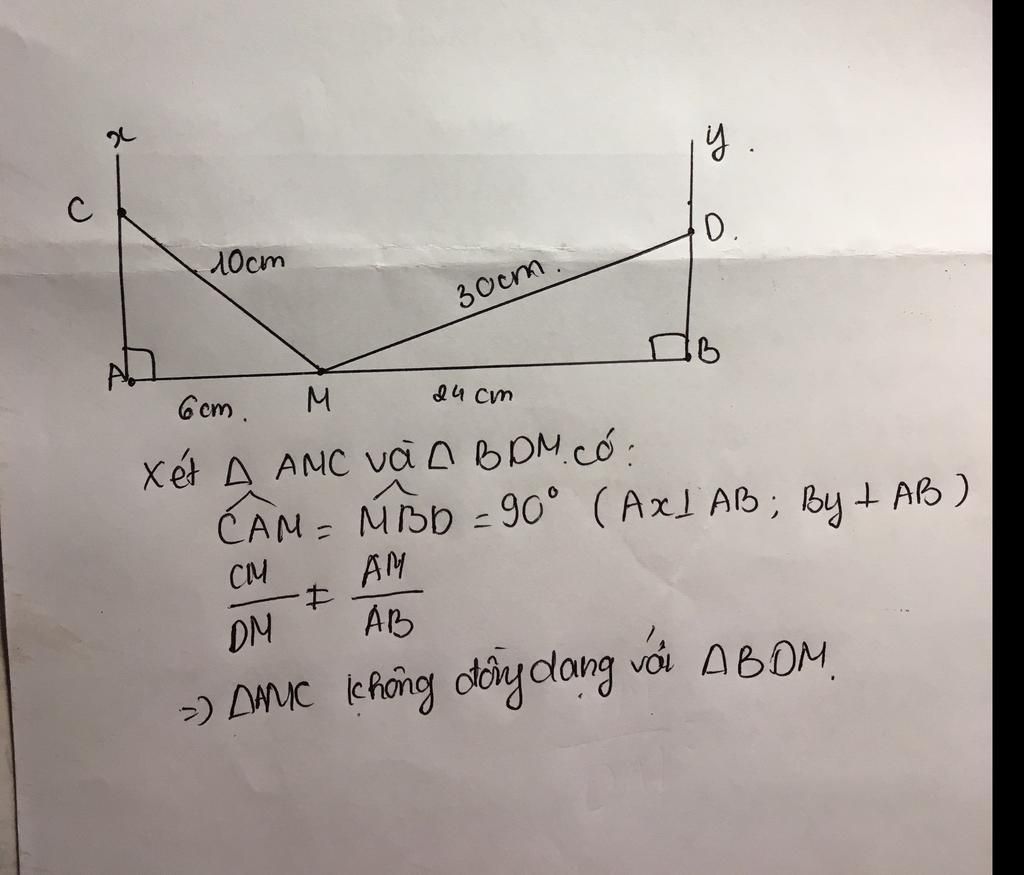 x
y.
C
D.
10cm
30cm.
A
B
6cm.
M
24 cm
Xét Δ AMC và Δ BDM.có:
\widehat{CAM} = \widehat{MBD} = 90° (Ax⊥ AB; By ⊥ AB)
CM/DM ≠ AM/AB
=> ΔAMC không đồng dạng với ΔBDM.